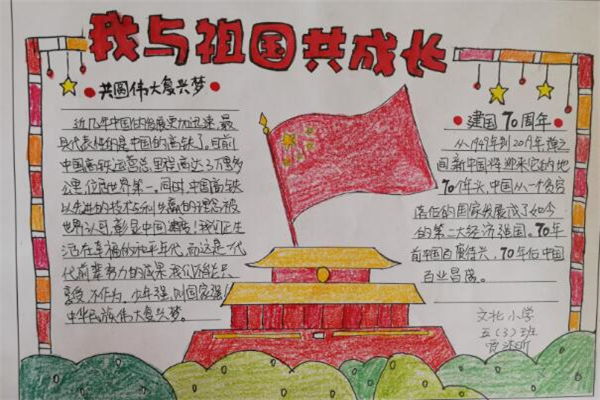 我与祖国共成长
共圆伟大复兴梦
近几年中国的发展更加迅速,最
具代表性的是中国的高铁了。目前
中国高铁运营总里程高达3万多
公里,位居世界第一。同时,中国高铁
以先进的技术与的理念被
世界认可,彰显中国速度!我们正生
活在幸福的和平年代,而这是一代
代前辈努力的成果,我们
享受,不作为,少年强,则国家强!
中华民族伟大复兴梦。
建国70周年
从1949年到2019年,
间新中国将迎来它的
70年头,中国从一个
的国家发展成了如今
的第二大经济强国。70年
前中国百废待兴,70年后中国
百业昌盛。
文化小学
五(3)班